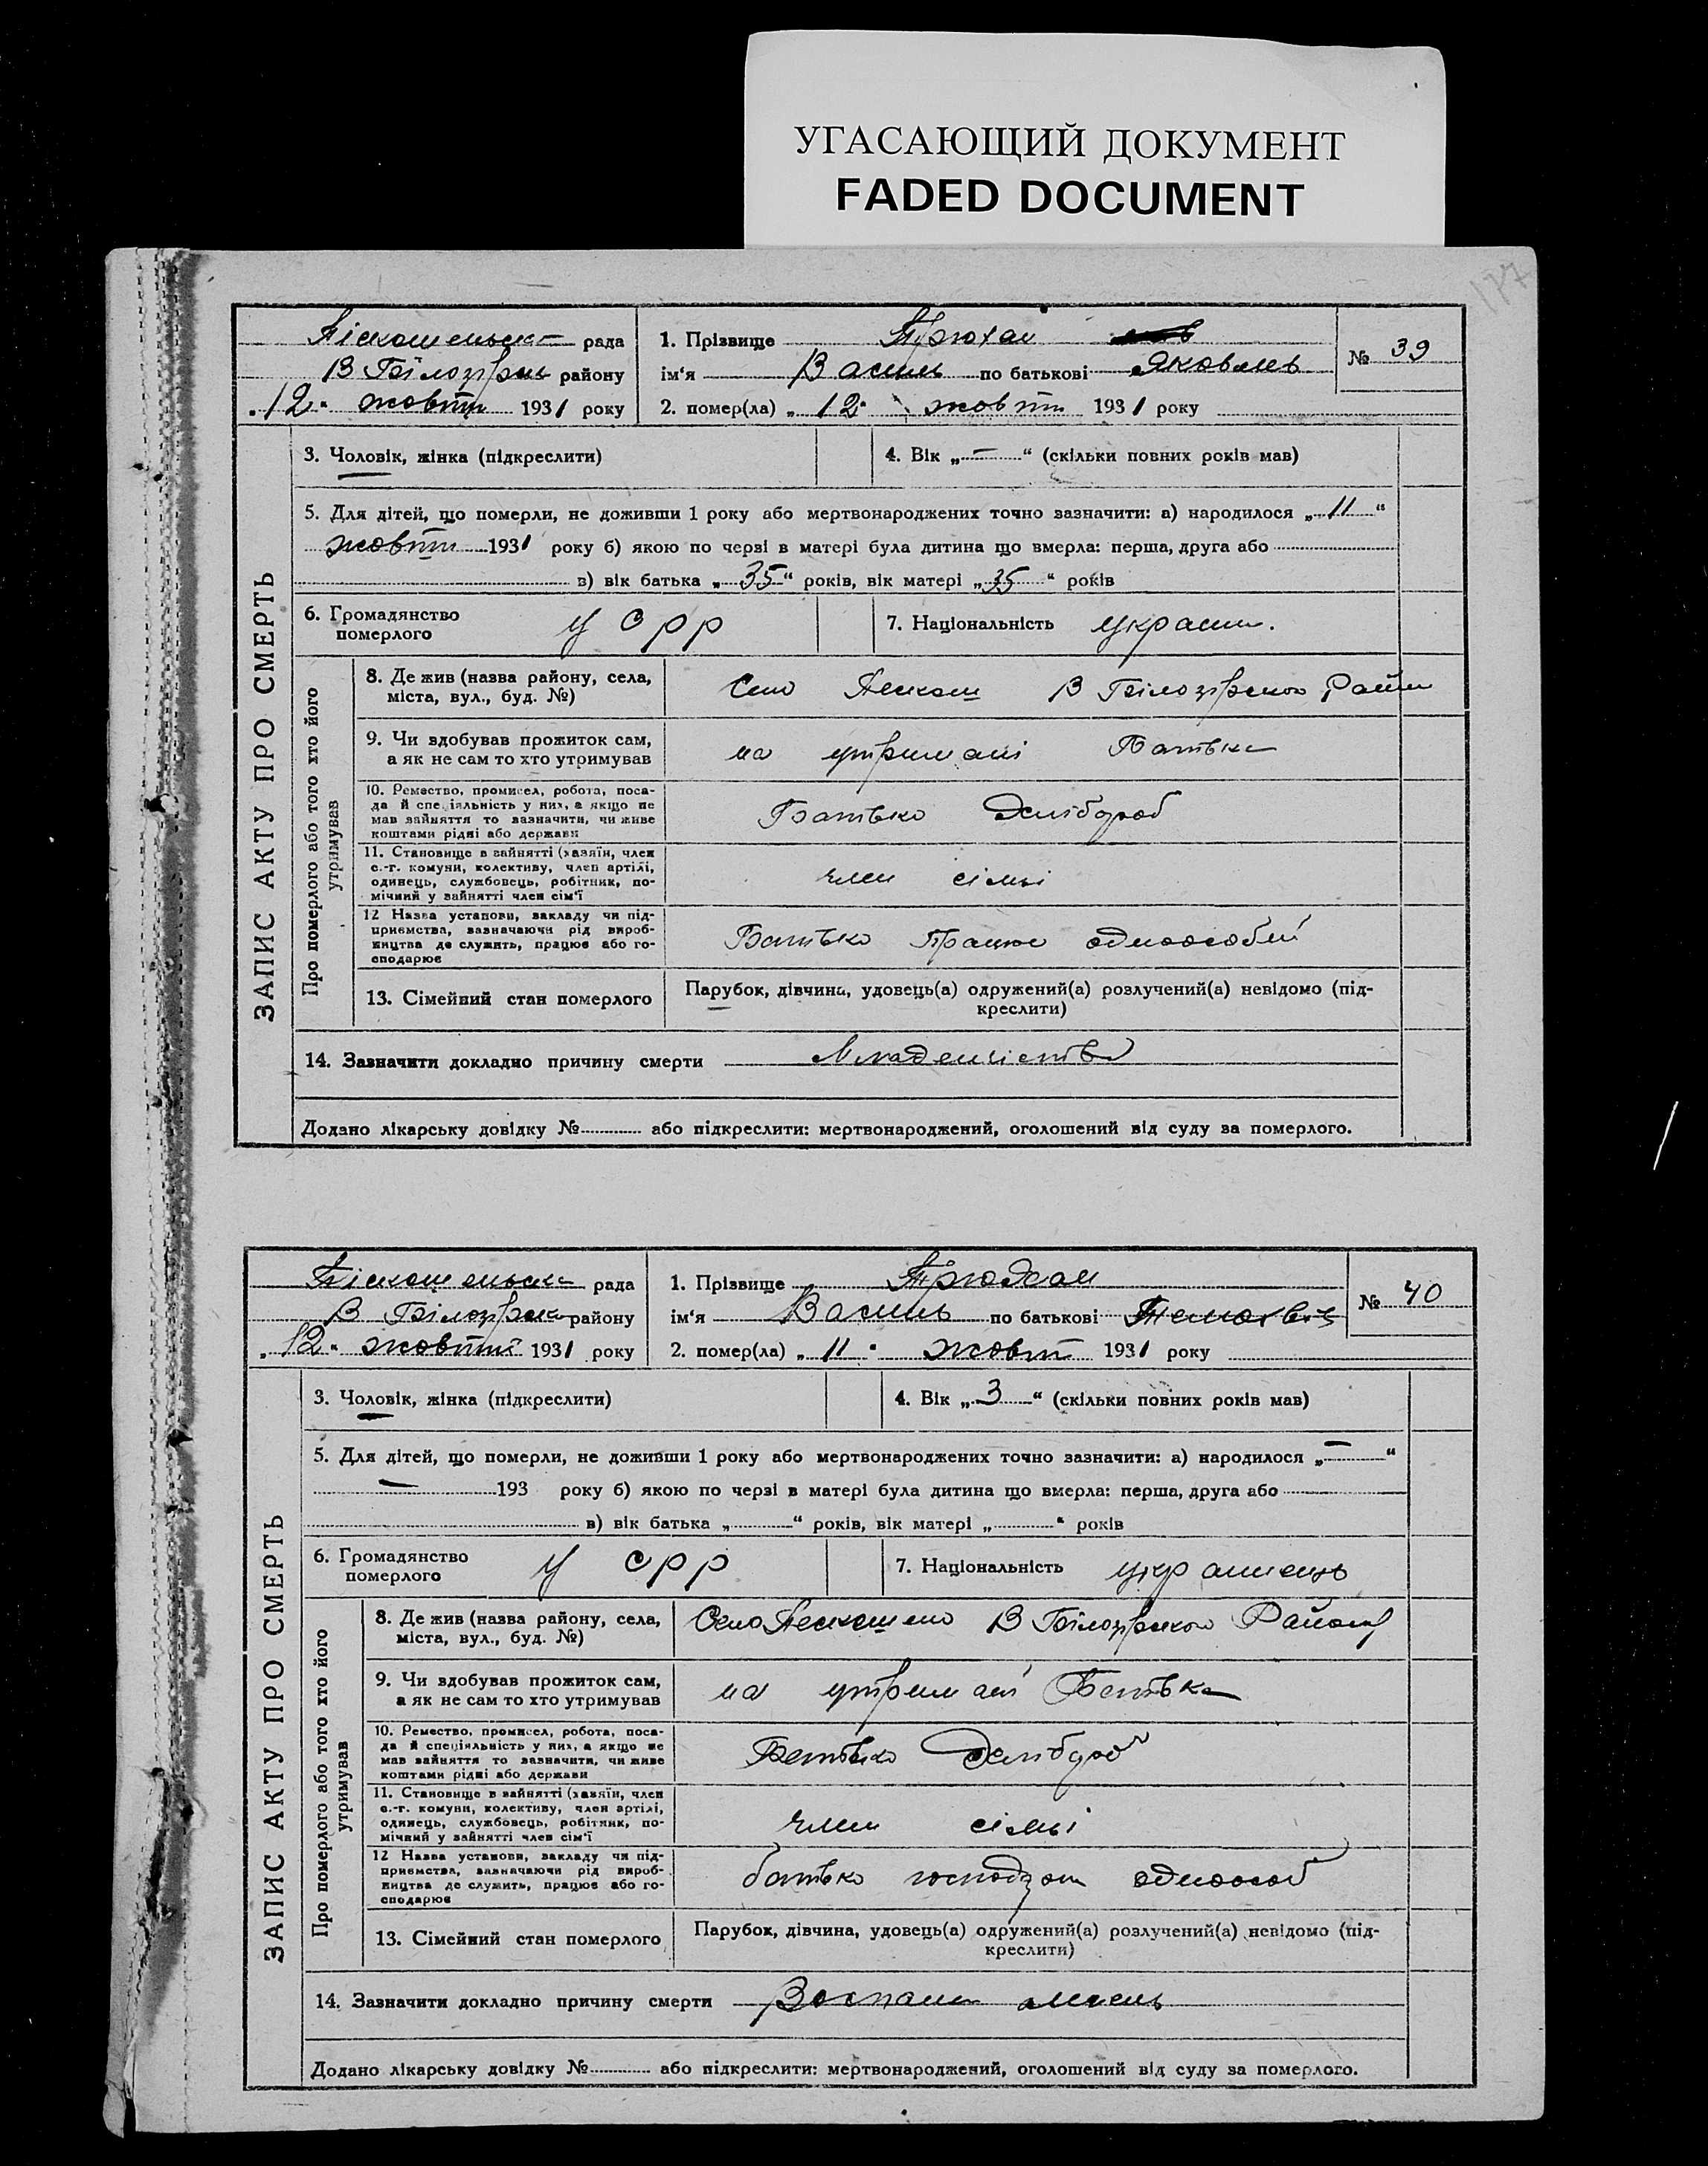 УГАСАЮЩИЙ ДОКУМЕНТ
FADED DOCUMENT
177
ЗАПИС АКТУ ПРО СМЕРТЬ
рада
В Білозірськ району
"12" жовтн 1931 року
1. Прізвище Трюхан
ім'я Василь по батькові Яковлев
2. помер(ла) „12" жовтн 1931 року
№ 39
3. Чоловік, жінка (підкреслити)
4. Вік „—" (скільки повних років мав)
5. Для дітей, що померли, не доживши 1 року або мертвонароджених точно зазначити: а) народилося „11"
жовтн 1931 року б) якою по черзі в матері була дитина що вмерла: перша, друга або
в) вік батька „35" років, вік матері „35" років
6. Громадянство
померлого
У СРР
7. Національність украин.
Про померлого або того хто його
утримував
8. Де жив (назва району, села,
міста, вул., буд. №)
Село В Білозірського Райн
9. Чи здобував прожиток сам,
а як не сам то хто утримував
на утримані Батька
10. Ремество, промисел, робота, поса-
да й спеціяльність у них, а якщо не
мав зайняття то зазначити, чи живе
коштами рідні або держави
Батько Хлібороб
11. Становище в зайнятті (хазяїн, член
с.-г. комуни, колективу, член артілі,
одинець, службовець, робітник, по-
мічний у зайнятті член сім'ї
член сімьі
12 Назва установи, закладу чи під-
приємства, зазначаючи рід вироб-
ництва де служить, працює або го-
сподарює
Батько Працює одноособ
13. Сімейний стан померлого
Парубок, дівчина, удовець(а) одружений(а) розлучений(а) невідомо (під-
креслити)
14. Зазначити докладно причину смерти Младенчіство
Додано лікарську довідку № або підкреслити: мертвонароджений, оголошений від суду за померлого.
ЗАПИС АКТУ ПРО СМЕРТЬ
рада
В Білозірсько району
"12" жовтні 1931 року
1. Прізвище Трюхан
ім'я Василь по батькові
2. помер(ла) „11" жовтн 1931 року
№ 40
3. Чоловік, жінка (підкреслити)
4. Вік „3" (скільки повних років мав)
5. Для дітей, що померли, не доживши 1 року або мертвонароджених точно зазначити: а) народилося „—"
— 193 року б) якою по черзі в матері була дитина що вмерла: перша, друга або
в) вік батька „" років, вік матері „" років
6. Громадянство
померлого
У СРР
7. Національність украинець
Про померлого або того хто його
утримував
8. Де жив (назва району, села,
міста, вул., буд. №)
Село В Білозірського Району
9. Чи здобував прожиток сам,
а як не сам то хто утримував
на утримані Батька
10. Ремество, промисел, робота, поса-
да й спеціяльність у них, а якщо не
мав зайняття то зазначити, чи живе
коштами рідні або держави
Батько Хлібороб
11. Становище в зайнятті (хазяїн, член
с.-г. комуни, колективу, член артілі,
одинець, службовець, робітник, по-
мічний у зайнятті член сім'ї
член сімьі
12 Назва установи, закладу чи під-
приємства, зазначаючи рід вироб-
ництва де служить, працює або го-
сподарює
батько одноособ
13. Сімейний стан померлого
Парубок, дівчина, удовець(а) одружений(а) розлучений(а) невідомо (під-
креслити)
14. Зазначити докладно причину смерти
Додано лікарську довідку № або підкреслити: мертвонароджений, оголошений від суду за померлого.